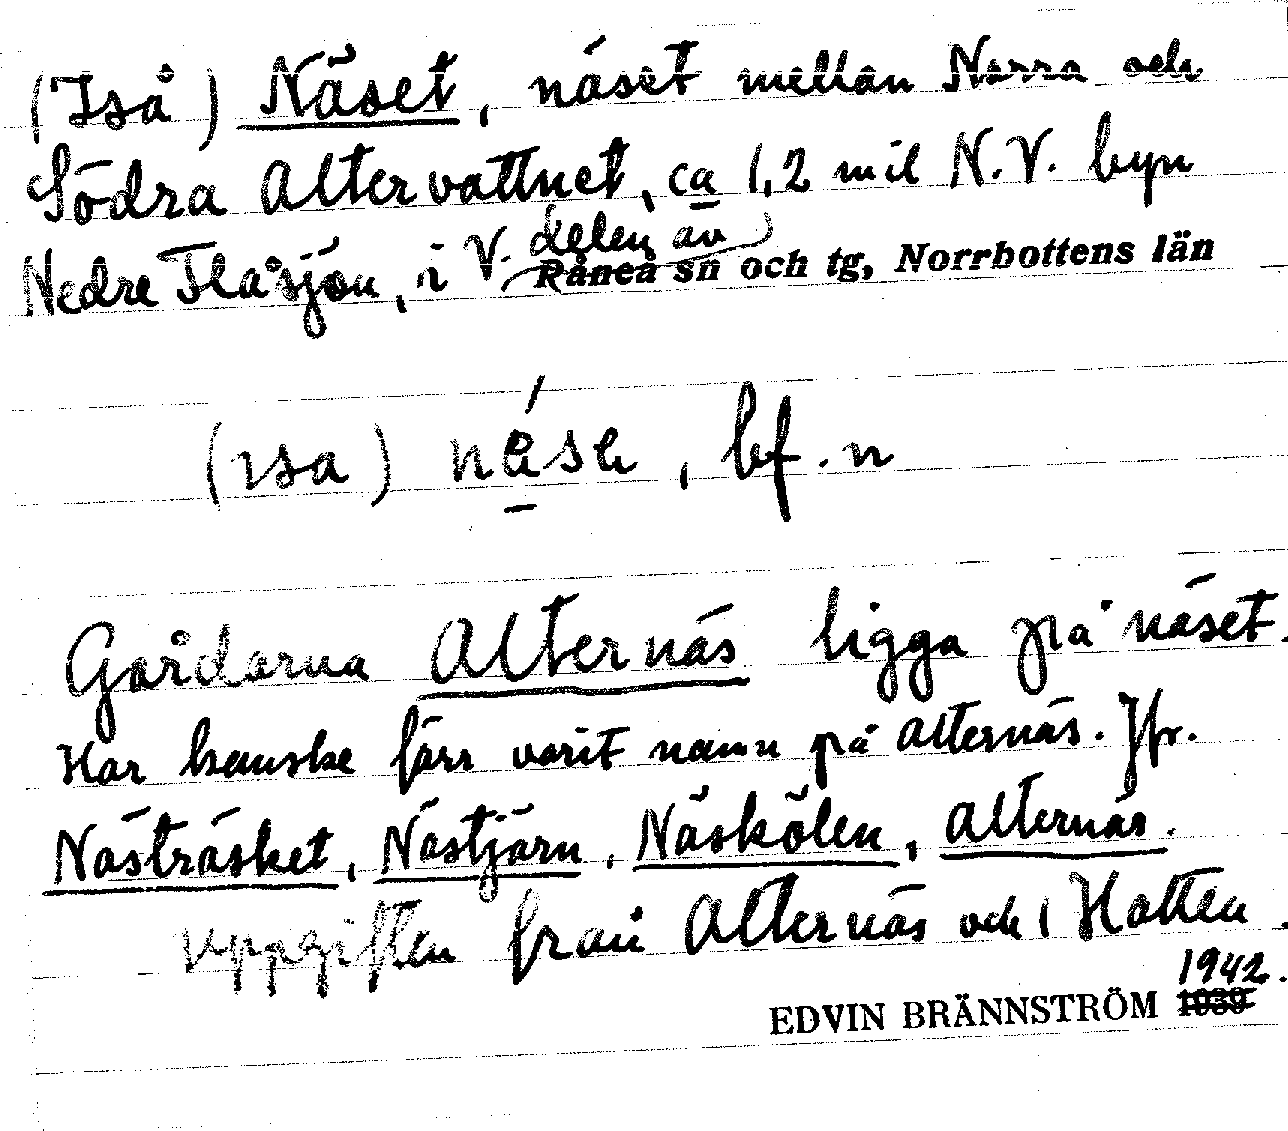 (Iså) Näset, näset mellan Norra och
Södra Altervattnet, ca 1,2 mil N.V. byn
Nedre Flåsjön, i V. delen av Råneå sn och tg, Norrbottens län
(ısa) nǻse, bf. n
Gårdarna Alternäs ligga på näset.
Har kanske förr varit namn på Alternäs. Jfr.
Nästräsket, Nästjärn, Näskölen, Alternäs.
Uppgiften från Alternäs och Hotten.
EDVIN BRÄNNSTRÖM 1942.